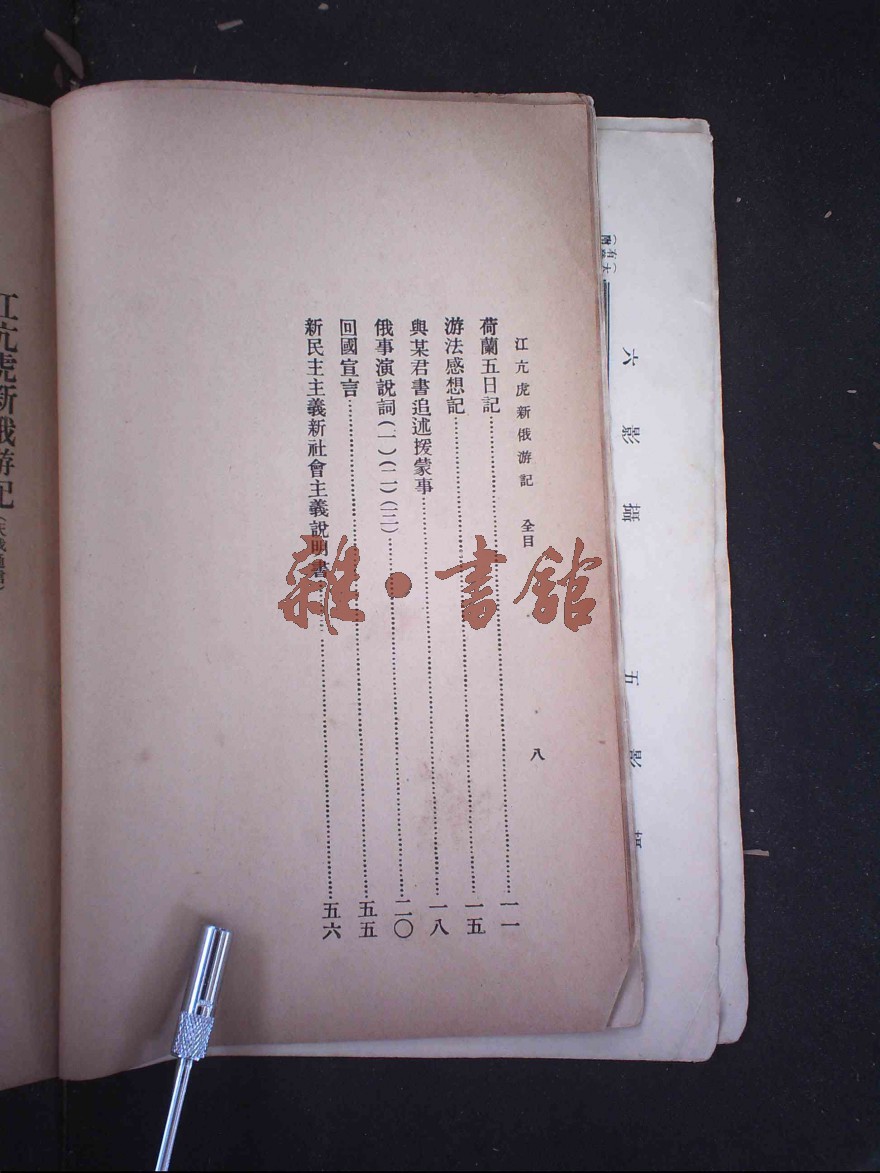 江亢虎新俄游記 全目 八
荷蘭五日記……一一
游法感想記……一五
與某君書追述援蒙事……一八
俄事演說詞(一)(二)(三)……二〇
回國宣言……五五
新民主主義新社會主義說明書……五六
江亢虎新俄游記
六影攝
五影
雜·書館